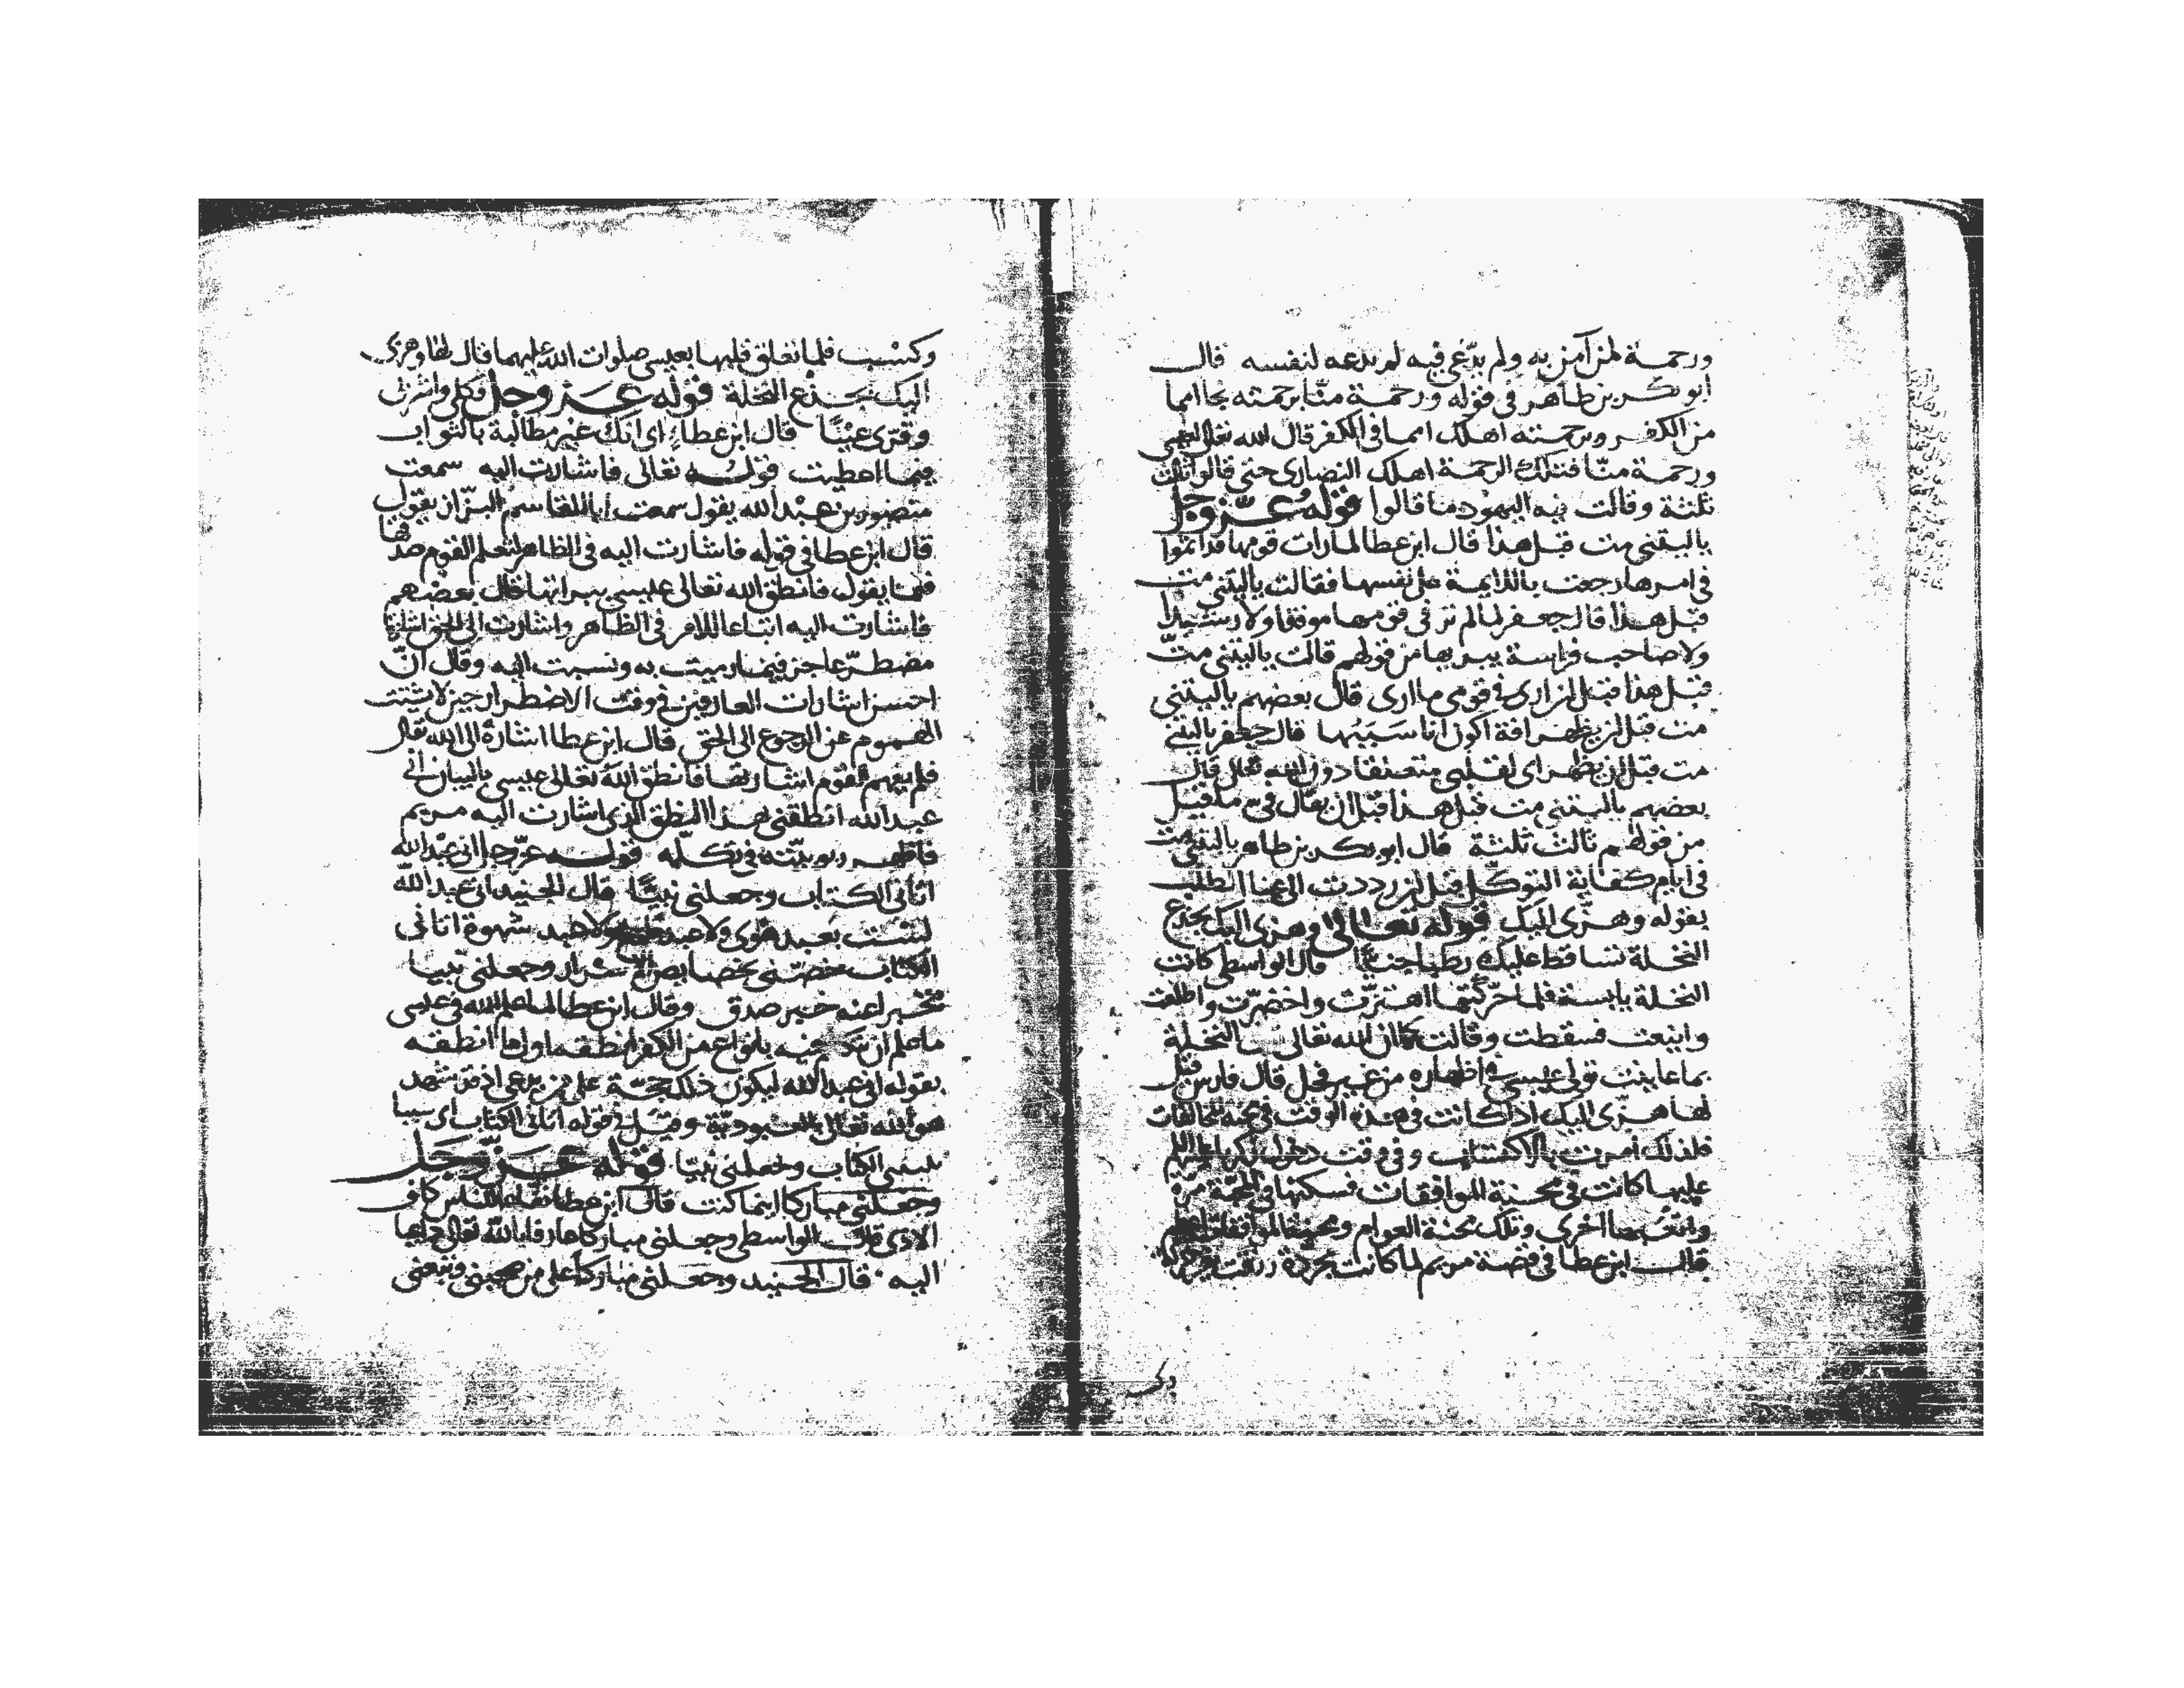 ورحمة لمن آمن به ولم يدّعي فيه لم يدعه لنفسه قال
ابو بكر بن طاهر في قوله ورحمة منّا برحمته نجا امما
من الكفر وبرحمته اهلك امما في الكفر قال الله تعالى
ورحمة منّا فتلك الرحمة اهلك النصارى حتى قالوا ثالث
ثلثة وقالت فيه اليهود ما قالوا قوله عزّ وجل
ياليتني مت قبل هذا قال ابن عطا لما رات قومها قد اتموا
في امرها رجعت باللايمة على نفسها فقالت ياليتني مت
قبل هذا قال جعفر لما لم تر في قومها موفقا ولا رشيدا
ولا صاحب فراسة يبريها من قولهم قالت ياليتني متّ
قبل هذا قبل ان ارى في قومي ما ارى قال بعضهم ياليتني
مت قبل ان يظهر افة اكون انا سَبَبُها قال جعفر ياليتني
مت قبل ان يظهر اي لقلبي متعلقا دون الله تعالى قال
بعضهم ياليتني مت قبل هذا قبل ان يقال في ما قيل
من قولهم ثالث ثلثة قال ابو بكر بن طاهر ياليتني مت
في ايام كفاية التوكّل قبل ان رددت الى عنا الطلب
بقوله وهزّي اليك قوله تعالى وهزي اليك بجذع
النخلة تساقط عليك رطبا جنيّا قال الواسطي كانت
النخلة يابسة فلما حرّكتها اهتزّت واخضرّت واطلعت
واينعت فسقطت وقالت كما ان الله تعالى النخلة
بما عاينت تولى عيسى في اظهاره من غير فحل قال فارس قيل
لها هزّي اليك اذ كانت في هذه الوقت في
فلذلك امرت بالاكتساب وفي وقت دخول زكريا عليه السلم
عليها كانت في محبة الموافقات فسكنها في المحبّة مرة
واتعبها اخرى وتلك محنة العوام
قال ابن عطا في قصة مريم لما كانت مجرّدة رزقت
وكسب
وكسب فلما تعلق قلبها بعيسى صلوات الله عليهما قال لها وهزي
اليك بجذع النخلة قوله عز وجل فكلي واشربي
وقرّي عيْنًا قال ابن عطاء اي انك غير مطالبة بالثواب
فيما اعطيت قوله تعالى فاشارت اليه سمعت
منصور بن عبْد الله يقول سمعت أبا القاسم البزّاز يقول
قال ابن عطا في قوله فاشارت اليه في الظاهر لتعلم القوم صدقها
فيما يقول فانطق الله تعالى عيسى ببراتها قال بعضهم
فاشارت اليه اتباعا للامر في الظاهر واشارت الى الحق اشارة
مضطرّ عاجز فيما رميت به ونسبت اليه وقال انّ
احسن اشارات العارفين في وقت الاضطرار حين لا يشتت
الهموم عن الرجوع الى الحق قال ابن عطا اشارة الى الله تعالى
فلم يفهم القوم اشارتها فانطق الله تعالى عيسى بالبيان اني
عبد الله انطقني بهذا النطق الذي اشارت اليه مريم
قوله عزّ وجل اني عبد الله
اتاني الكتاب وجعلني نبيًّا قال الجنيد اني عبد الله
لست بعبد هوى ولا عبد ولا عبد شهوة اتاني
الكتاب خصّني بخصايص الاسرار وجعلني نبيا
مخبرا عنه خبر صدق وقال ابن عطا لما علم الله في عيسى
ما علم ان يتكلم فيه بانواع من الكفر انطقه اول ما انطقه
بقوله اني عبد الله ليكون ذلك حجّة على من يدعي اذ من شهد
هو لله تعالى بالعبوديّة وقيل في قوله اتاني الكتاب اي
الكتاب وجعلني نبيّا قوله عزّ وجل
وجعلني مباركا اينما كنت قال ابن عطا نفاعا للناس كاف
الاذى قال الواسطي وجعلني مباركا عارفا بالله تعالى داعيا
اليه قال الجنيد وجعلني مباركا على من صحبني وتبعني